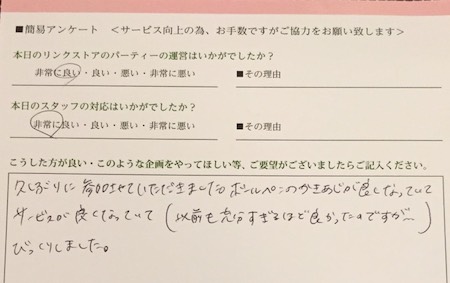 ■簡易アンケート ＜サービス向上の為、お手数ですがご協力をお願い致します＞
本日のリンクストアのパーティーの運営はいかがでしたか？
非常に良い・良い・悪い・非常に悪い ■その理由
本日のスタッフの対応はいかがでしたか？
非常に良い・良い・悪い・非常に悪い ■その理由
こうした方が良い・このような企画をやってほしい等、ご要望がございましたらご記入ください。
久しぶりに参加させていただきました。ボールペンのかきあじが良くなっていて
サービスが良くなっていて（以前も充分すぎるほど良かったのですが…）
びっくりしました。